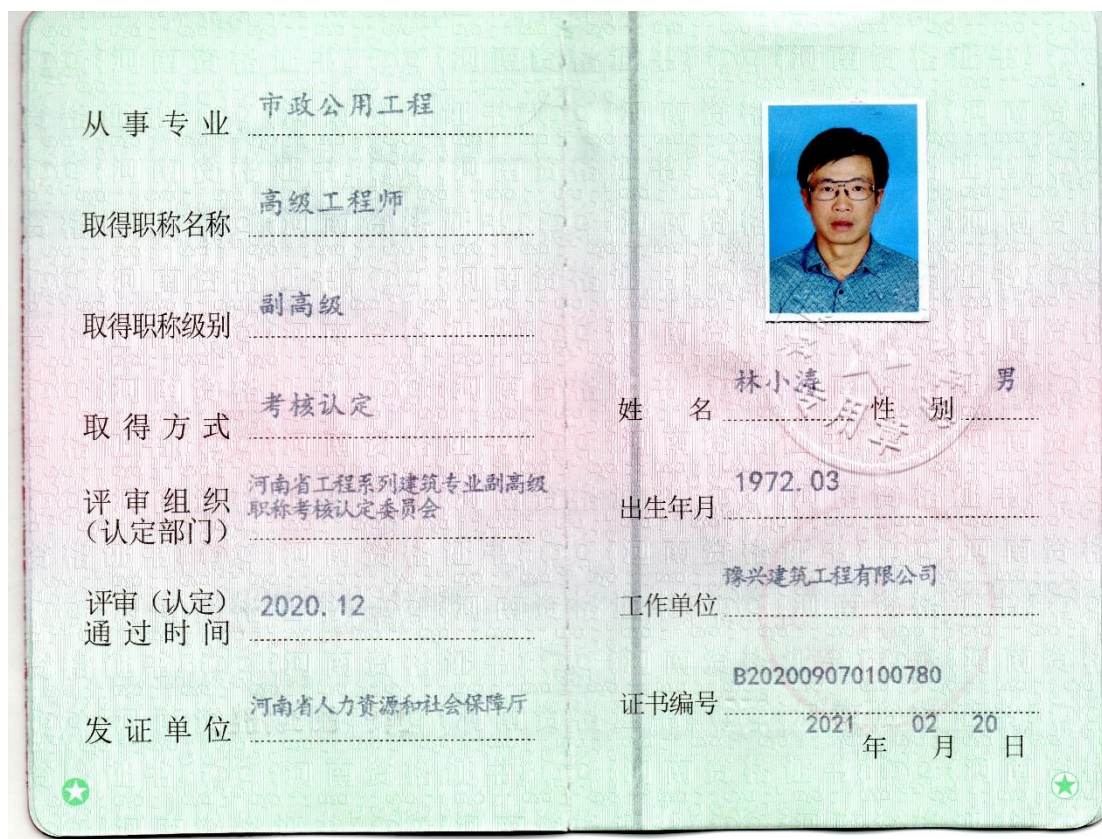 从事专业 市政公用工程
取得职称名称 高级工程师
取得职称级别 副高级
取得方式 考核认定
评审组织 河南省工程系列建筑专业副高级
(认定部门) 职称考核认定委员会
评审（认定） 2020.12
通过时间
发证单位 河南省人力资源和社会保障厅
姓名 林小涛 性别 男
出生年月 1972.03
工作单位 豫兴建筑工程有限公司
证书编号 B202009070100780
2021年02月20日
专用章